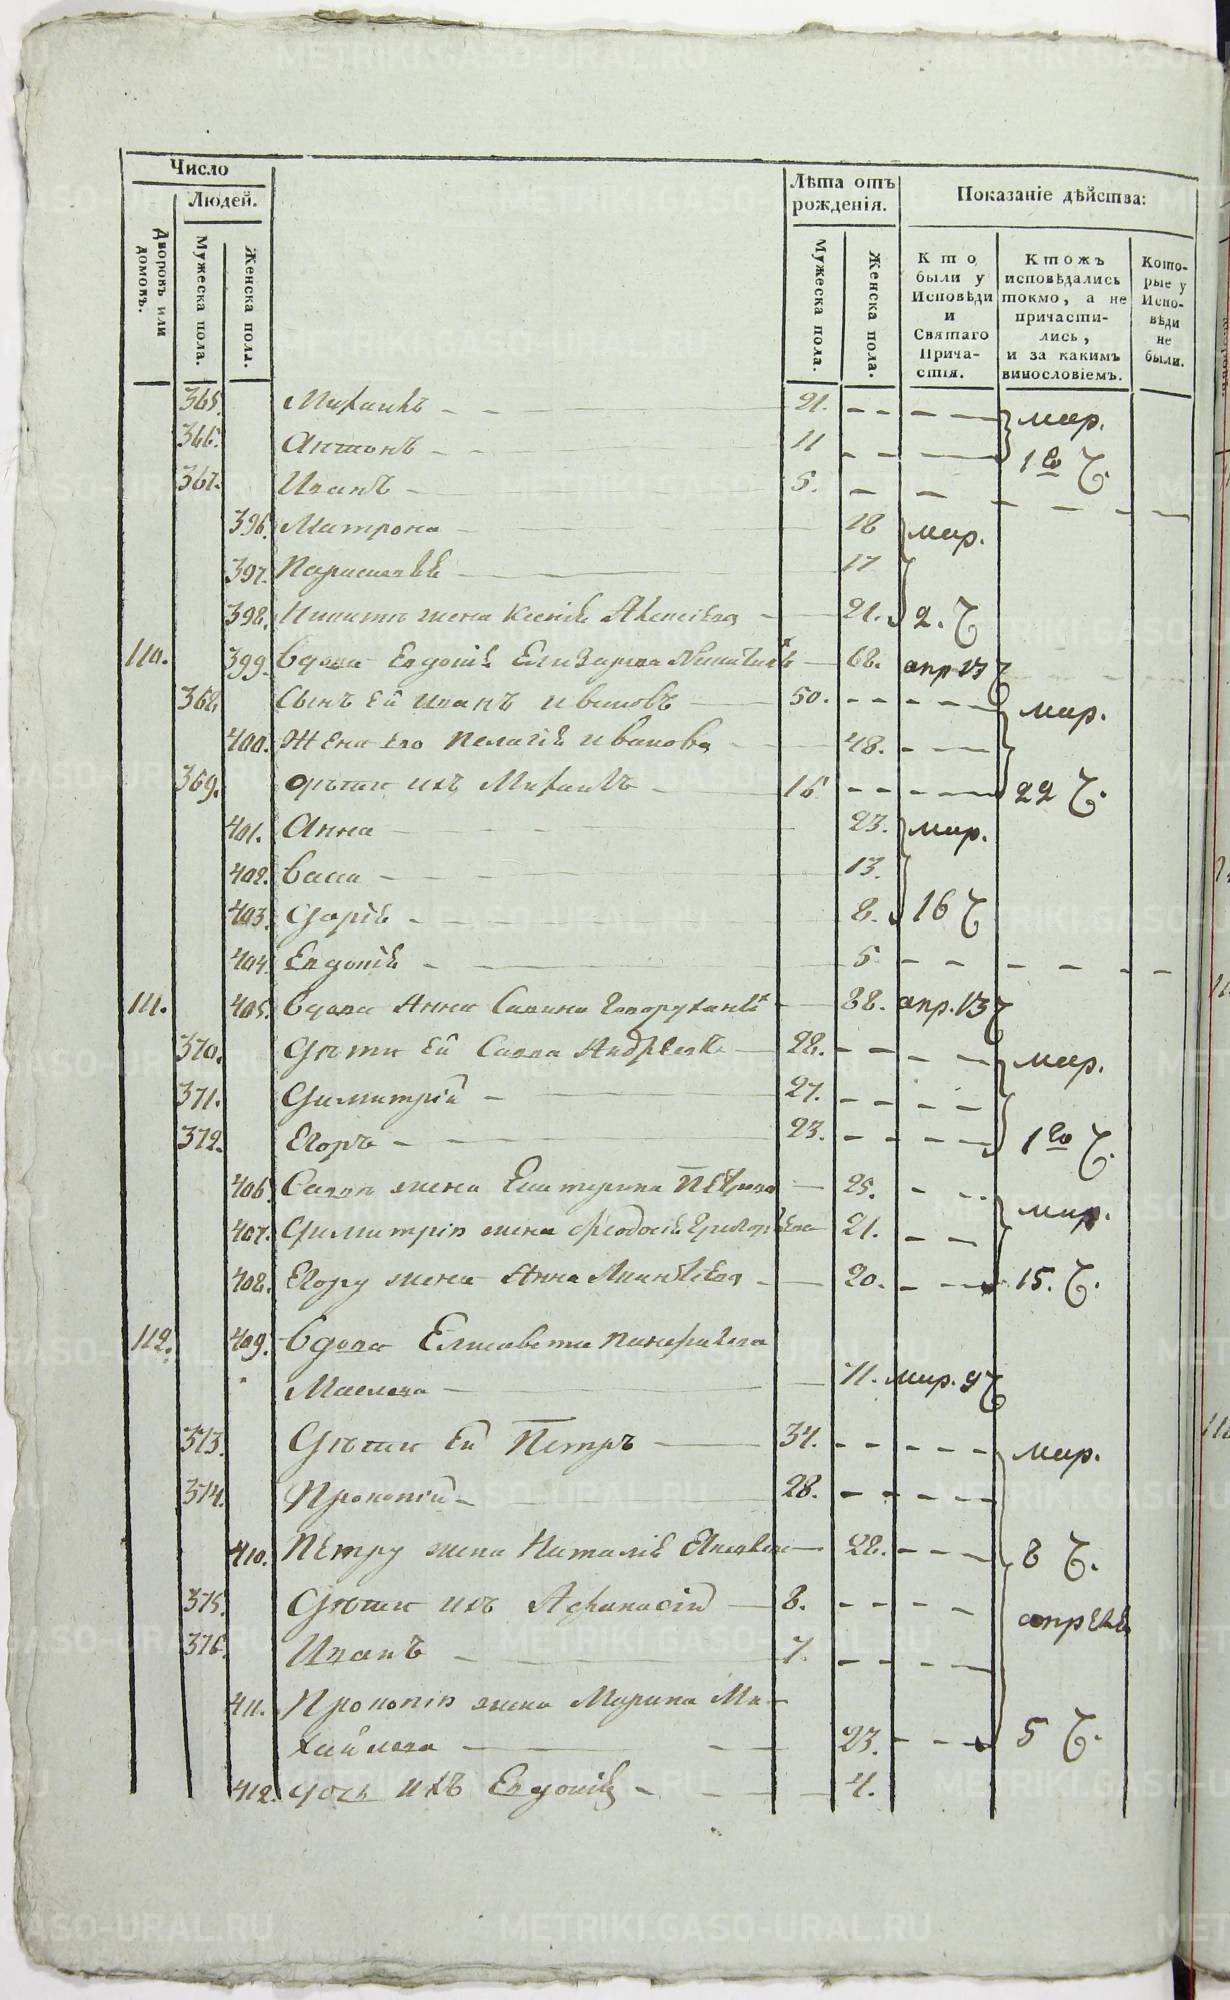 Число
Людей.
Дворовъ или домовъ.
Мужеска пола.
Женска пола.
Лѣта отъ рожденія.
Мужеска пола.
Женска пола.
Показаніе дѣйства:
Кто были у Исповѣди и Святаго Причастія.
Ктожъ исповѣдались токмо, а не причастились, и за какимъ винословіемъ.
Которые у Исповѣди не были.
365. Михаилъ 21. мар.
366. Антонъ 11 1го Ч.
367. Иванъ 5.
396. Матрона 18 мар.
397. Парасковія 17
398. Никиты жена Ксенія 21. 2. Ч
110. 399. Вдова Евдокія 68. апр 13 Ч
368 Сынъ Ей Иванъ Ивановъ 50. мар.
400. Жена Его Пелагія Иванова 48.
369. Дѣти ихъ Михаилъ 16 22 Ч.
401. Анна 23. мар.
402. Васса 13.
403. Дарія 8. 16 Ч
404. Евдокія 5
111. 405. Вдова Анна Савина 88. апр. 13 Ч
370. Дѣти Ей Савва 28. мар.
371. Димитрій 27.
372. Егоръ 23. 1го Ч.
406. Саввы жена Екатерина Петрова 25. мар.
407. Димитрія жена Феодосія Григорьева 21.
408. Егору жена Анна 20. 15. Ч.
112. 409. Вдова Елисавета
71. мар. 9 Ч
373. Дѣти Ей Петръ 34. мар.
374. Прокопій 28.
410. Петру жена Наталія 28. 8 Ч.
375. Дѣти ихъ Афанасій 8. апрѣля
376. Иванъ 7.
411. Прокопія жена Марина Ми-
хайлова 23. 5 Ч.
412. Дочь ихъ Евдокія 4.
METRIKI.GASO-URAL.RU